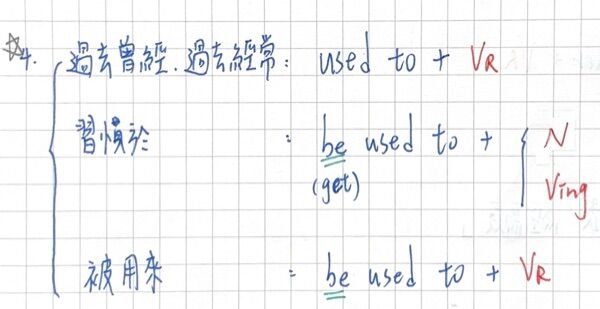 ☆4. 過去曾經.過去經常: used to + VR
習慣於 : be used to + { N
(get) Ving
被用來 : be used to + VR